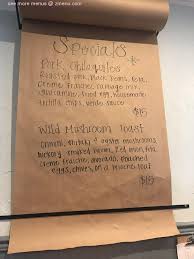 see more menus @ zmenu.com
Specials
Pork Chilaquiles
Roasted pork, black beans, feta,
creme fraiche, cabbage mix,
guacamole, fried egg, housemade
tortilla chips, verde sauce
$15
Wild Mushroom Toast
oyster mushrooms
hickory smoked bacon, red onion, feta,
creme fraiche, avocado, poached
eggs, chives, on a toast
$15